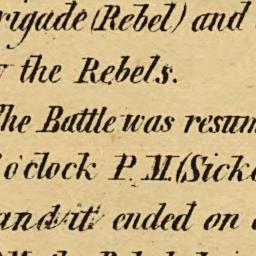 rigade (Rebel) and
the Rebels.
The Battle was resum
o'clock P. M. (Sick
and it ended on